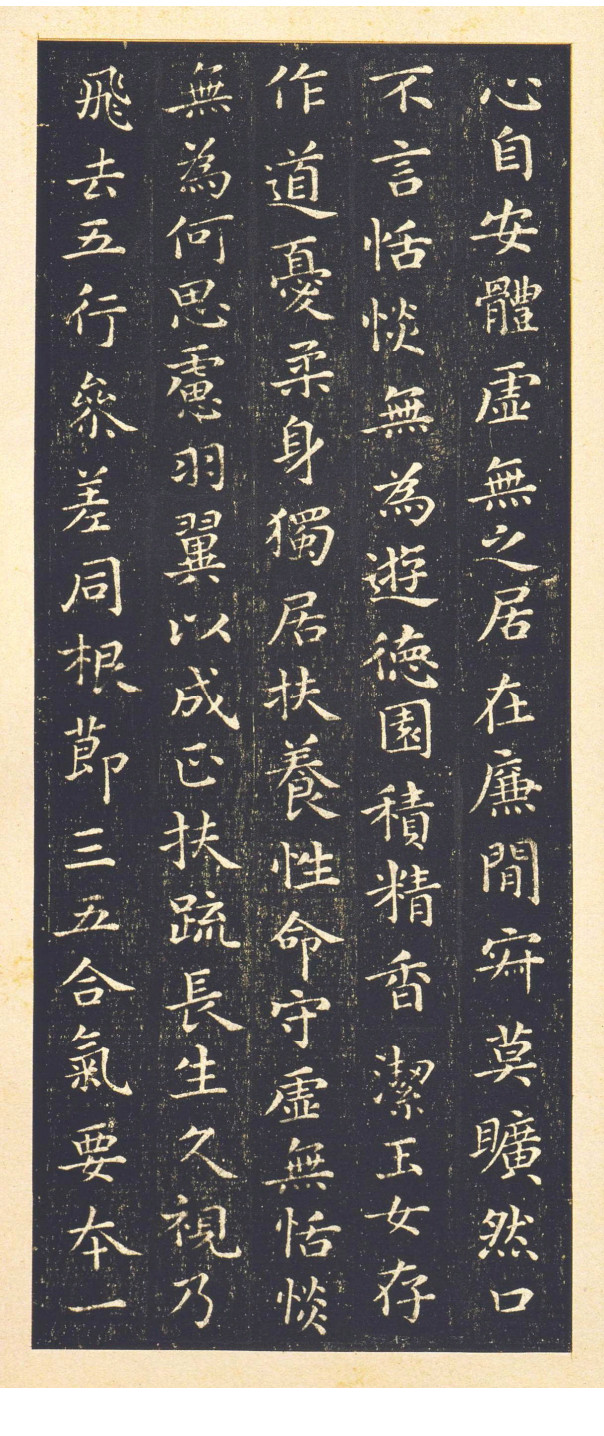 心自安體虛無之居在廉閒寂莫曠然口
不言恬惔無為遊德園積精香潔玉女存
作道憂柔身獨居扶養性命守虛無恬惔
無為何思慮羽翼以成正扶疏長生久視乃
飛去五行參差同根節三五合氣要本一